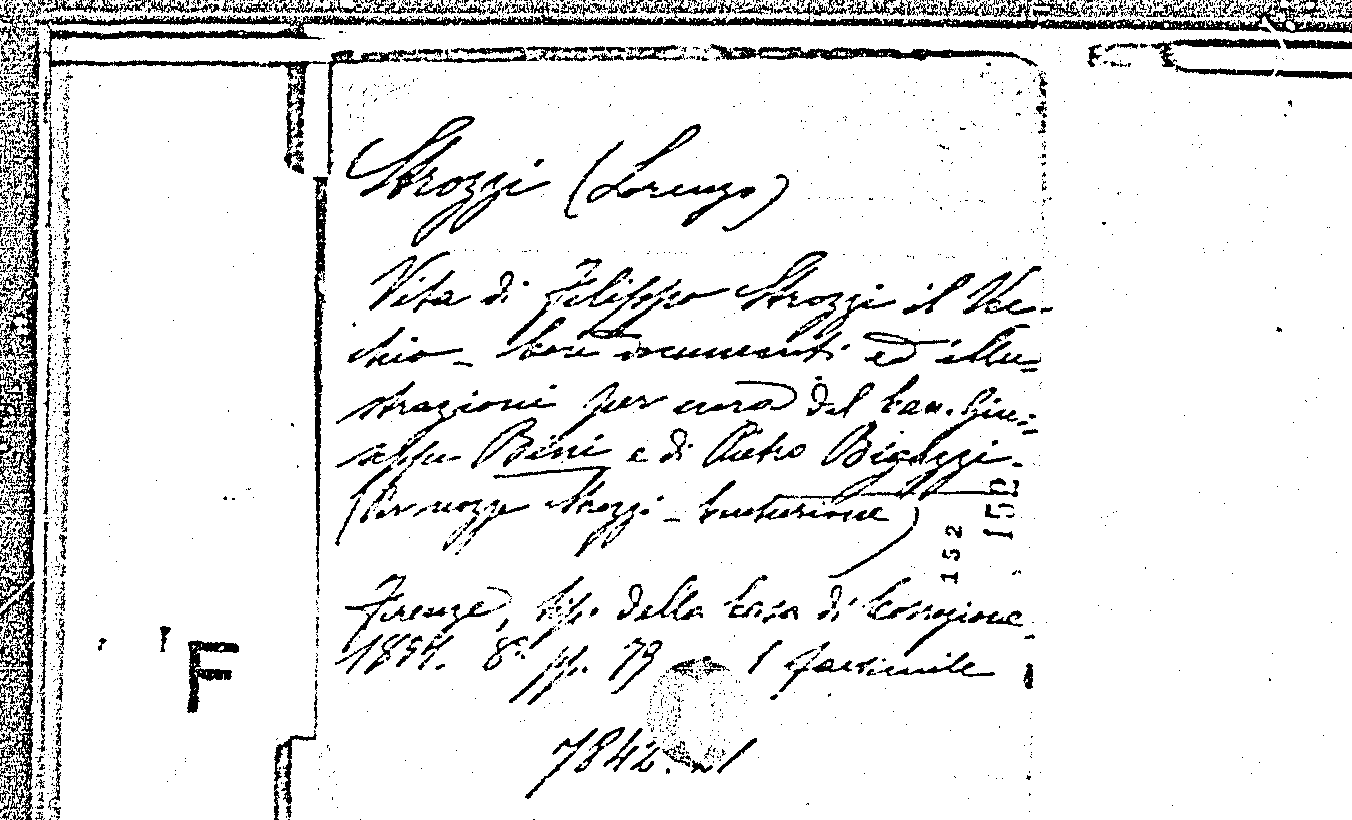 Strozzi (Lorenzo)
Vita di Filippo Strozzi il Vec-
chio - con documenti ed illu-
strazioni per cura del Can. Giu-
seppe Bini e di Pietro Bigazzi.
(Per nozze Strozzi - Centurione)
152
152
Firenze, tip. della Casa di Correzione
8° pp. 79 1 facsimile
F